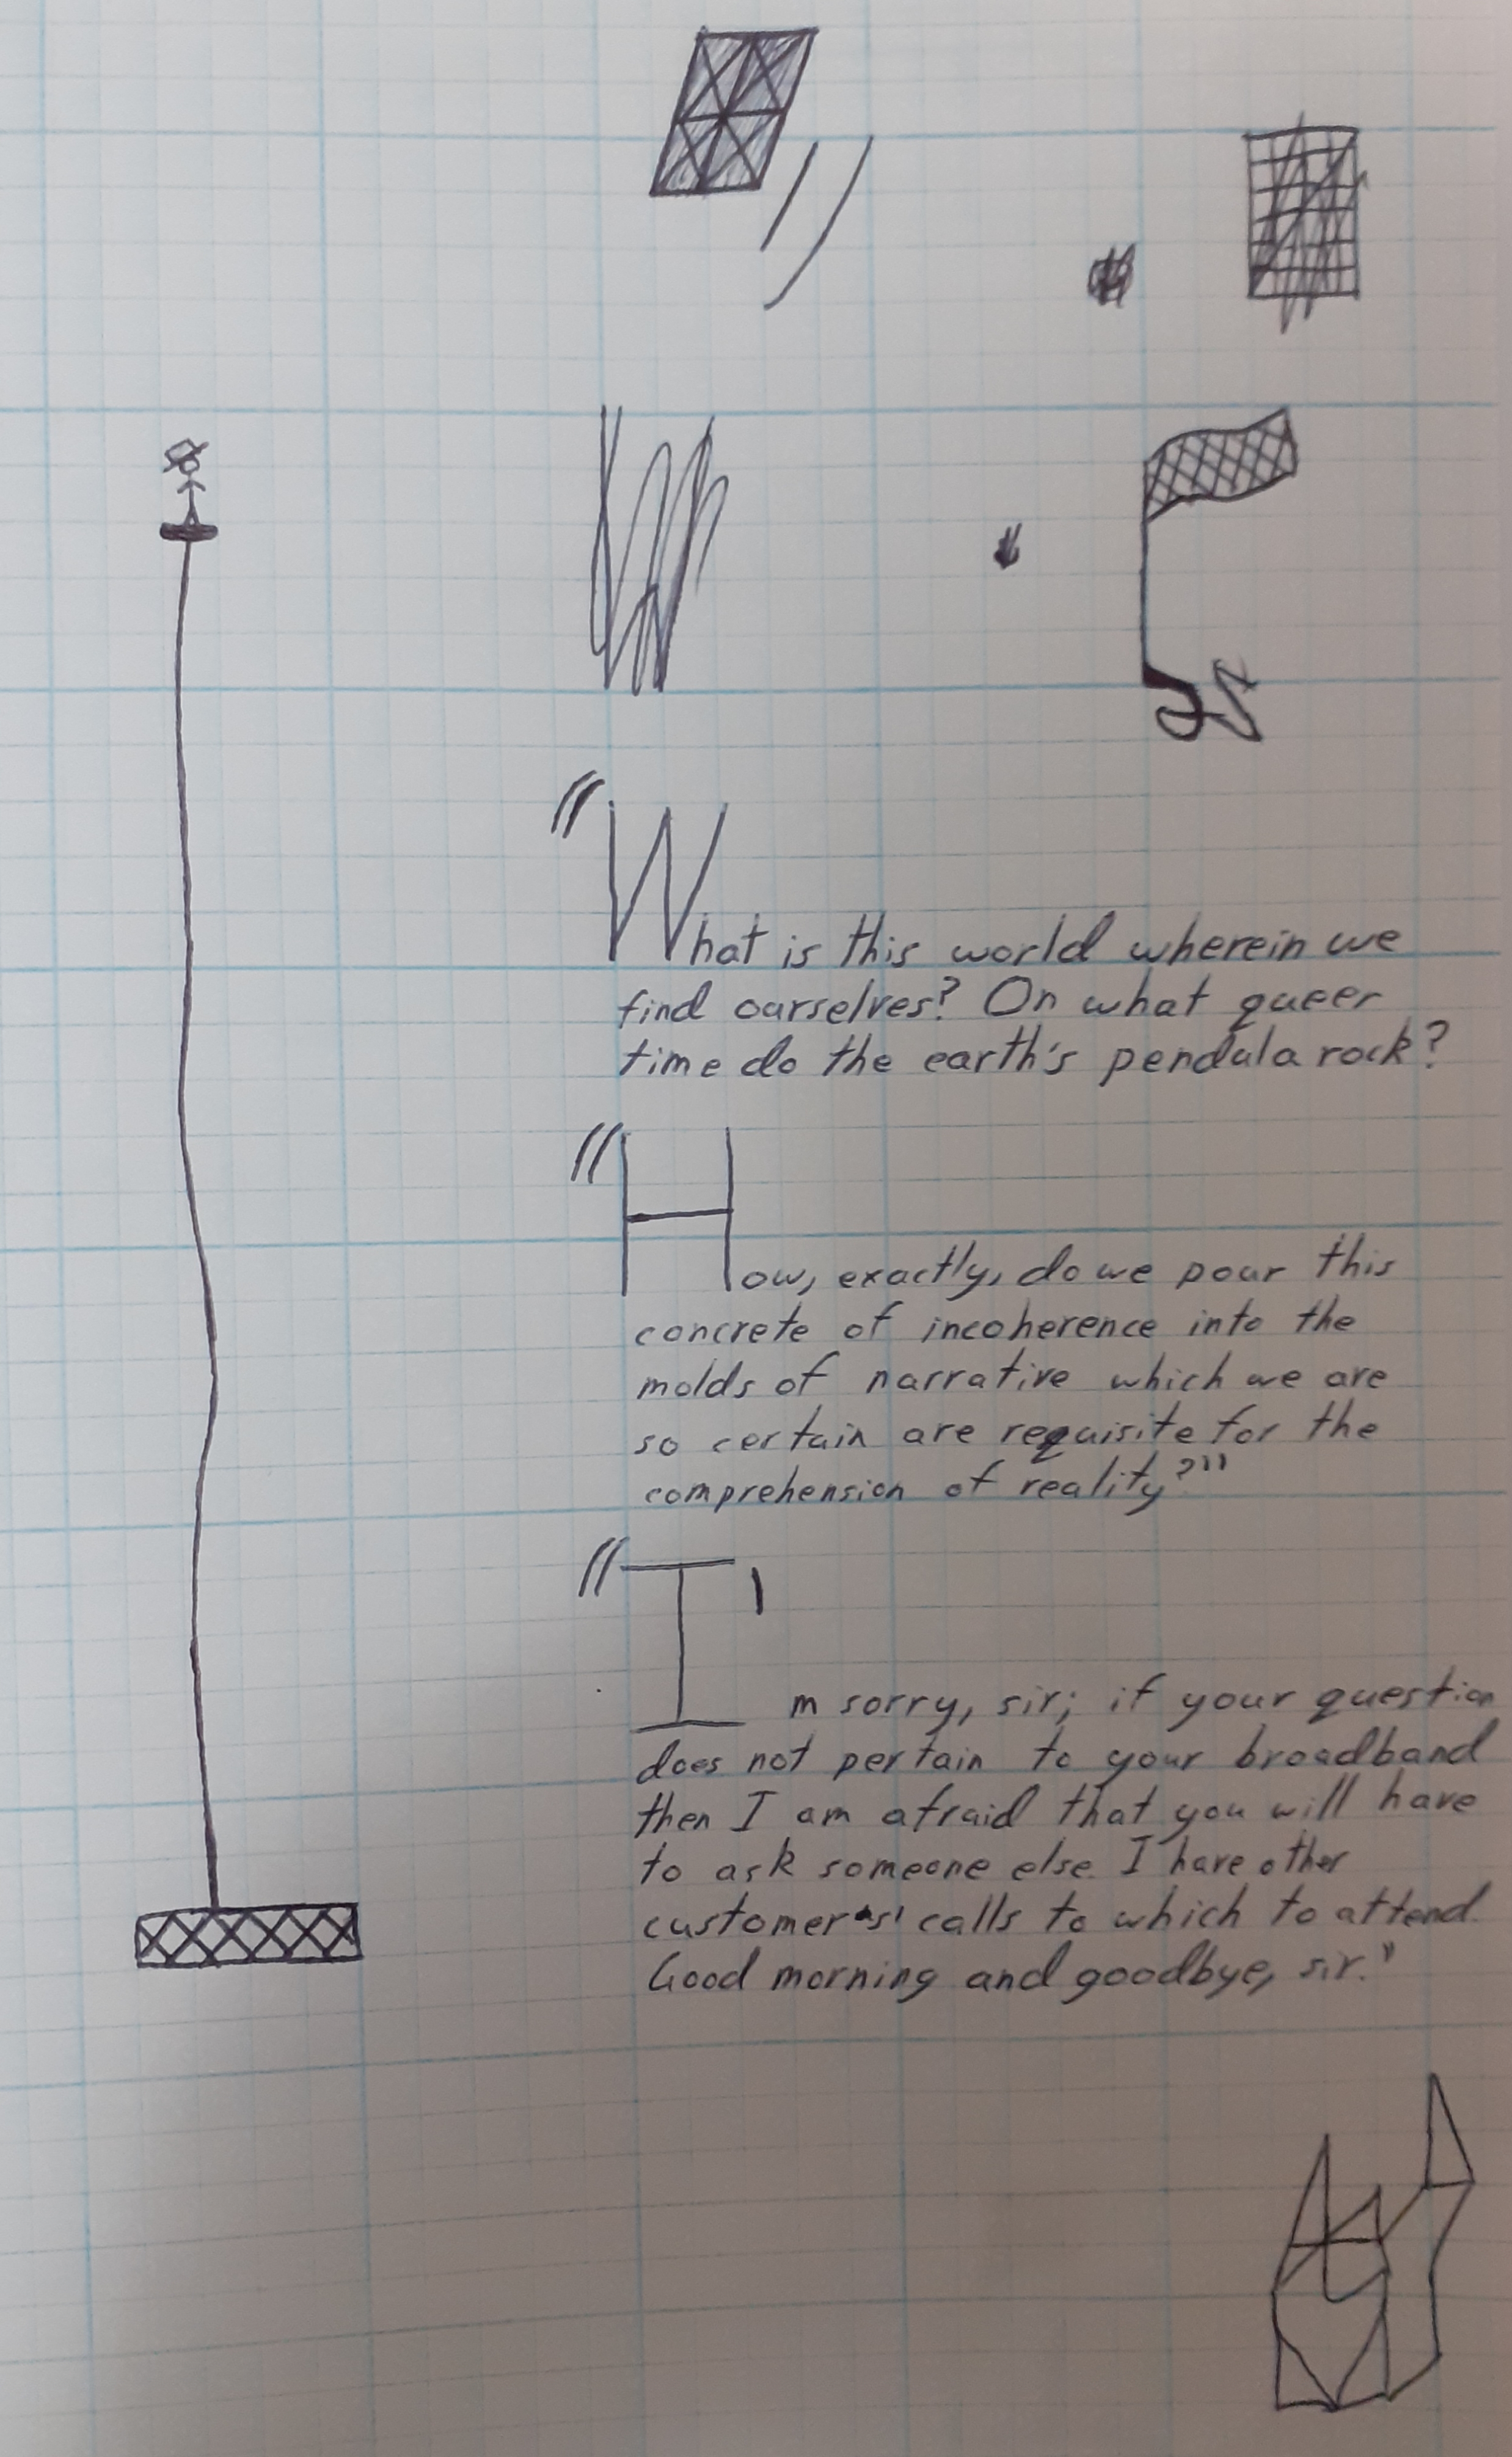 "What is this world wherein we
find ourselves? On what queer
time do the earth's pendula rock?
"How, exactly, do we pour this
concrete of incoherence into the
molds of narrative which we are
so certain are requisite for the
comprehension of reality?"
"I'm sorry, sir; if your question
does not pertain to your broadband
then I am afraid that you will have
to ask someone else. I have other
customers' calls to which to attend.
Good morning and goodbye, sir."